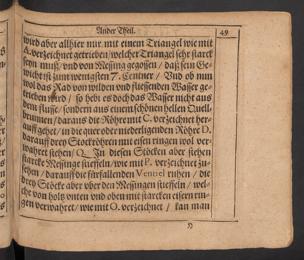 Ander Theil.
49
wird aber allhier nur mit einem Triangel wie mit
A. verzeichnet getrieben/ welcher Triangel sehr starck
seyn muß/ und von Messing gegossen/ daß sein Ge-
wicht ist zum wenigsten 7. Centner/ Und ob nun
wol das Rad von wilden und fliessenden Wasser ge-
trieben wird/ so hebt es doch das Wasser nicht aus
dem flusse/ sondern aus einem schönen hellen Quell-
brunnen/ daraus die Röhre mit C. verzeichnet her-
auff gehet/ in die quer oder niederligenden Röhre D.
darauff drey Stockröhren mit eisen ringen wol ver-
wahret stehen/ Q. In diesen Stöcken aber stehen
starcke Messinge stieffeln/ wie mit P. verzeichnet zu-
sehen/ darauff die fürfallenden Ventiel ruhen/ die
drey Stöcke aber uber den Messingen stieffeln/ wel-
che von holtz unten und oben mit starcken eisern rin-
gen verwahret/ wie mit O. verzeichnet/ kan man